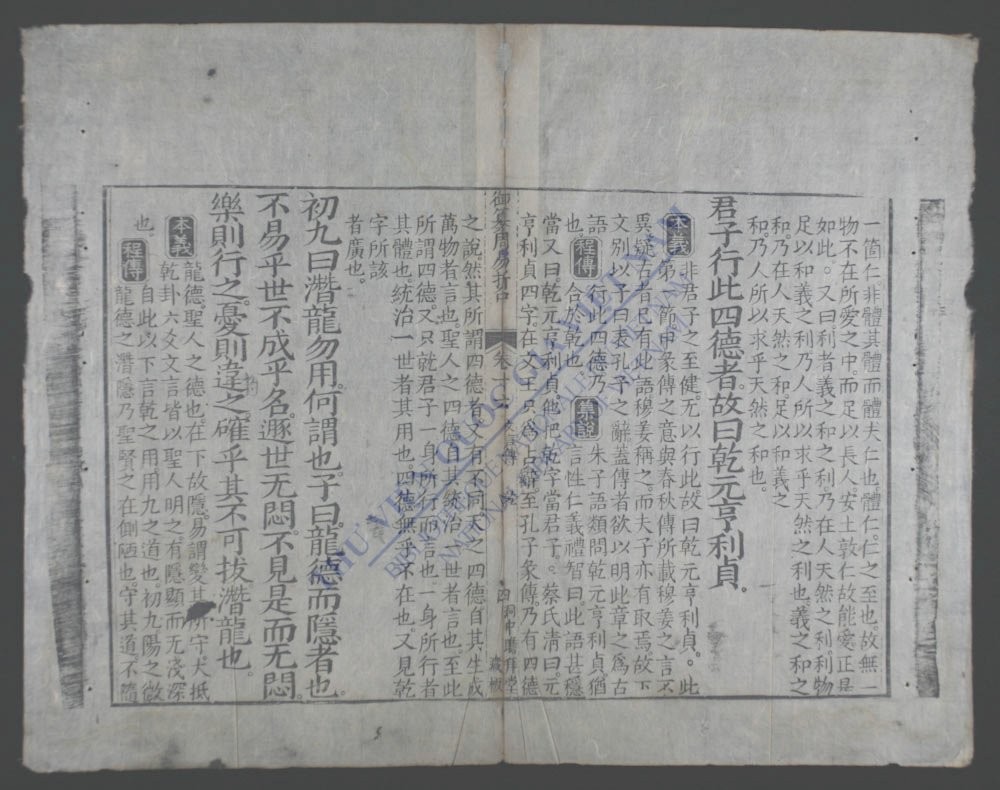 一箇仁非體其體而體夫仁也體仁仁之至也故無一
物不在所愛之中而足以長人安土敦仁故能愛正是
如此。又曰利者義之和之利乃在人天然之利利物
足以和義之利乃人所以求乎天然之利也義之和之
和乃在人天然之和足以和義之
和乃人所以求乎天然之和也。
君子行此四德者故曰乾元亨利貞。
本義 非君子之至健无以行此故曰乾元亨利貞。此
第一節申彖傳之意與春秋傳所載穆姜之言不
異疑古者已有此語穆姜稱之而夫子亦有取焉故下
文別以子曰表孔子之辭蓋傳者欲以明此章之為古
語 程傳 行此四德乃
也 合於乾也 集說 朱子語類問乾元亨利貞猶
言性仁義禮智曰此語甚穩
當又曰乾元亨利貞他把乾字當君子。蔡氏清曰元
亨利貞四字在文王只為占辭至孔子彖傳乃有四德
御纂周易折中 卷十 文言傳
四
之說然其所謂四德者又有不同天之四德自其生成
萬物者言也聖人之四德自其統治一世者言也至此
所謂四德又只就君子一身所行而言也一身所行者
其體也統治一世者其用也四德無乎不在也又見乾
字所該
者廣也。
初九曰潛龍勿用何謂也子曰龍德而隱者也
不易乎世不成乎名遯世无悶不見是而无悶
樂則行之憂則違之確乎其不可拔潛龍也
本義 龍德聖人之德也在下故隱易謂變其所守大抵
乾卦六爻文言皆以聖人明之有隱顯而无淺深
也 程傳 自此以下言乾之用用九之道也初九陽之微
龍德之潛隱乃聖賢之在側陋也守其道不隨
THƯ VIỆN QUỐC GIA VIỆT NAM
NATIONAL LIBRARY OF VIETNAM